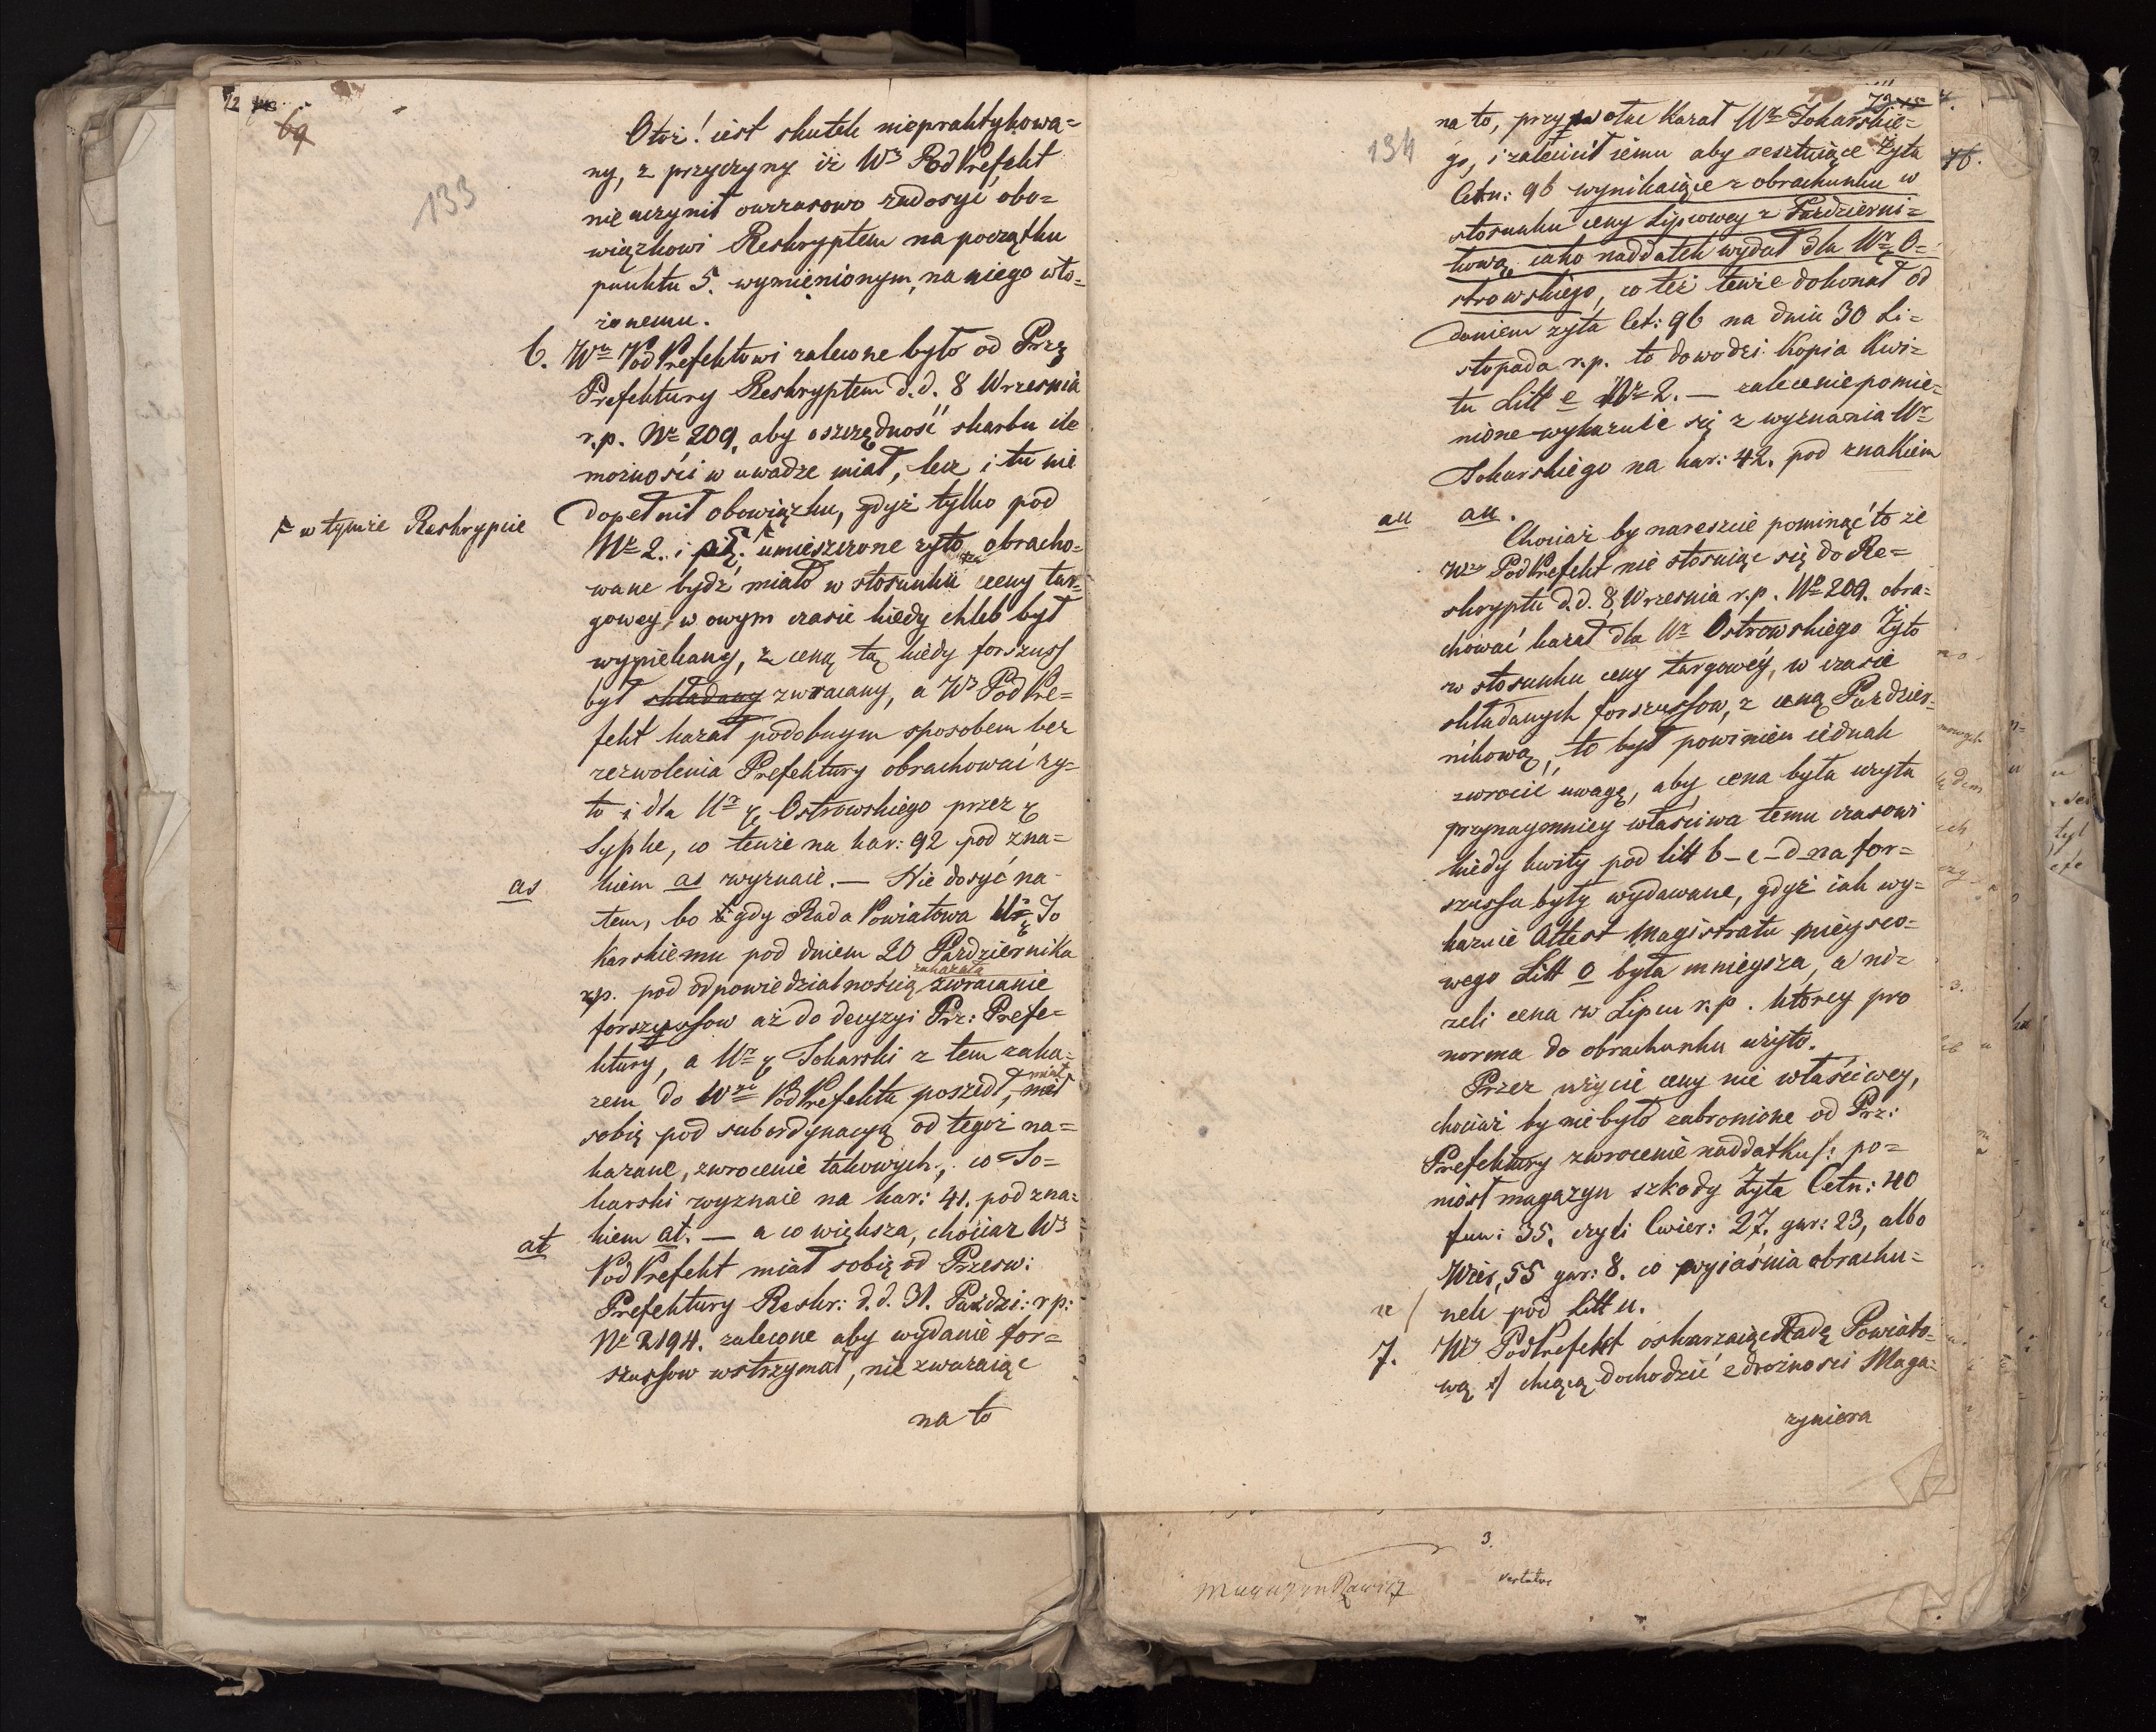 72
69
133
Otoż! iest skutek niepraktykowa=
ny, z przyczyny iż Wy PodPrefekt
nie uczynił owczasowo zadosyć obo=
wiązkowi Reskryptem na początku
punktu 5. wymienionym, na niego wło=
żonemu.
6. Wu PodPrefektowi zalecone było od Prze
Prefektury Reskryptem d.d. 8 Września
r.p. Nr 209, aby oszczędność skarbu ile
możności w uwadze miał, lecz i tu nie
dopełnił obowiązku, gdyż tylko pod
w tymże Reskrypcie
Nr 2. i umieszczone zyto obracho=
wane bydź miało w stosunku ceny tar=
gowey w owym czasie kiedy chleb był
wypiekany, z ceną tą kiedy forszuss
był składany zwracany, a Wy PodPre=
fekt kazał podobnym sposobem bez
zezwolenia Prefektury obrachować ży=
to i dla Ur Ostrowskiego przez
Syphe, co tenże na kar: 92 pod zna=
as
kiem as wyznaie. — Nie dosyć na
tem, bo gdy Rada Powiatowa Ur To
karskiemu pod dniem 20 Pazdziernika
zakazała
rp. pod odpowiedzialnością zwracanie
forszussow aż do decyzyi Prz: Prefe=
ktury, a Ur Tokarski z tem zaka=
zem do Wgo PodPrefekta poszedł, miał
miał
sobie pod subordynacyą od tegoż na=
kazane, zwrocenie takowych, co To=
karski wyznaie na kar: 41. pod zna=
at
kiem at. — a co większa, chociaz Wy
PodPrefekt miał sobie od Przesw:
Prefektury Reskr: d.d. 31. Paździ: rp:
Nr 2194. zalecone aby wydanie for=
szussow wstrzymał, nie zważaiąc
na to
73
76.
134
na to, przywołac kazał Ur Tokarskie=
go, i zalecił iemu aby resztuiące Zyta
Cetn: 96 wynikaiące z obrachunku w
stosunku ceny Lipcowey z Pazdzierni=
kową, iako naddatek wydał dla Ur O=
strowskiego, co też tenże dokonał od
daniem zyta Cet: 96 na dniu 30 Li=
stopada r.p. to dowodzi Kopia Kwi=
tu Litt e Nr 2. — zalecenie pomie=
nione wykazuie się z wyznania Ur
Tokarskiego na kar: 42. pod znakiem
au
au.
Chociaż by nareszcie pominąć to że
Wy PodPrefekt nie stosuiąc się do Re=
skryptu d.d. 8 Września r.p. Nr 209. obra=
chować kazał dla Ur Ostrowskiego Zyto
w stosunku ceny targowey, w czasie
składanych forszussow, z ceną Pazdzier=
nikową, to był powinien iednak
zwrocić uwagę, aby cena była uzyta
przynaymniey właściwa temu czasowi
kiedy kwity pod litt b – c – d na for=
szussa były wydawane, gdyż iak wy=
kazuie Attest Magistratu mieysco=
wego Litt o była mnieysza, a ni=
zeli cena w Lipcu r.p. ktorey pro
norma do obrachunku użyto.
Przez użycie ceny nie właściwey,
chociaż by nie było zabronione od Prz:
Prefektury zwrocenie naddatku/: po=
niósł magazyn szkody Zyta Cetn: 40
fun: 35, czyli Cwier: 27. gar: 23, albo
Wier, 55 gar: 8. co wyiaśnia obrachu=
u
nek pod Litt u.
7. Wy PodPrefekt oskarzaiąc Radę Powiato=
wą chcącą dochodzić zdrożności Maga=
zyniera
3.
Magazyn Rawicz